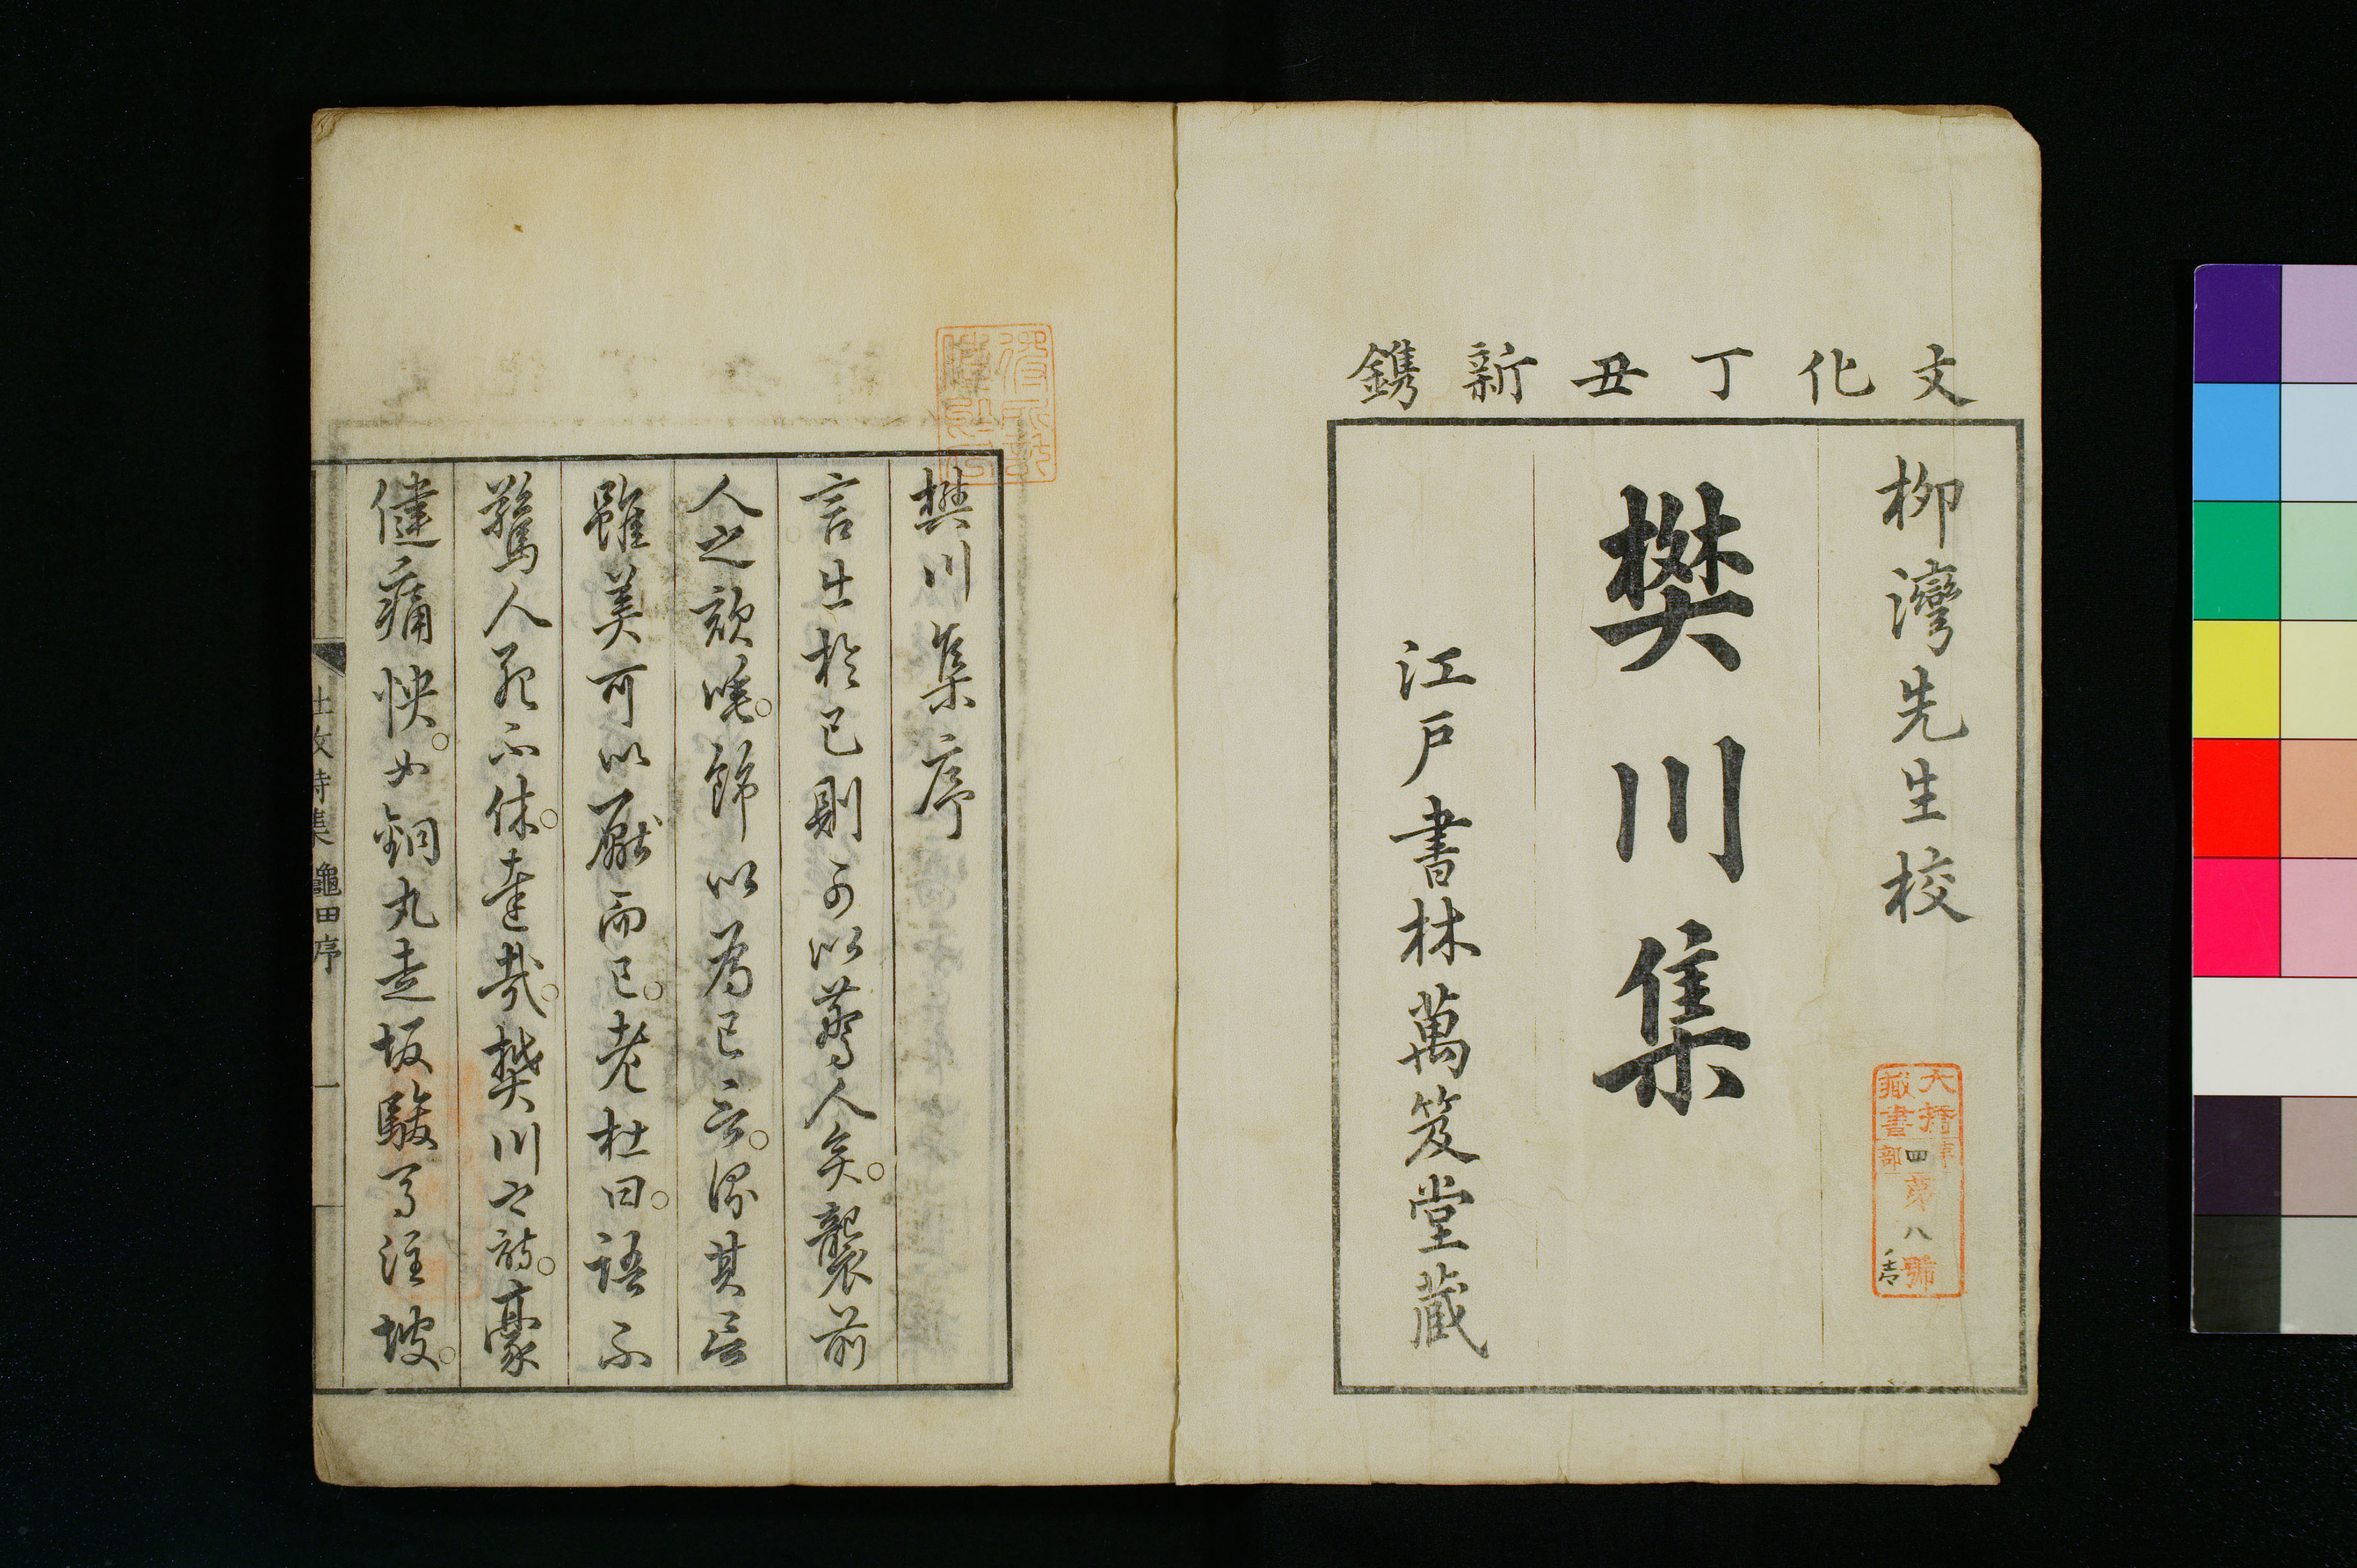 文化丁丑新鐫
柳灣先生校
樊川集
江戸書林萬笈堂蔵
大
藏書
部四
第八號
樊川集序
言出於己則可以驚人矣襲前
人之欬唾飾以為己言深其言
雖美可以厭而已老杜曰語不
驚人死不休達哉樊川之詩豪
健痛快如銅丸走坂駿馬注坡
杜牧詩集 龜田序 一